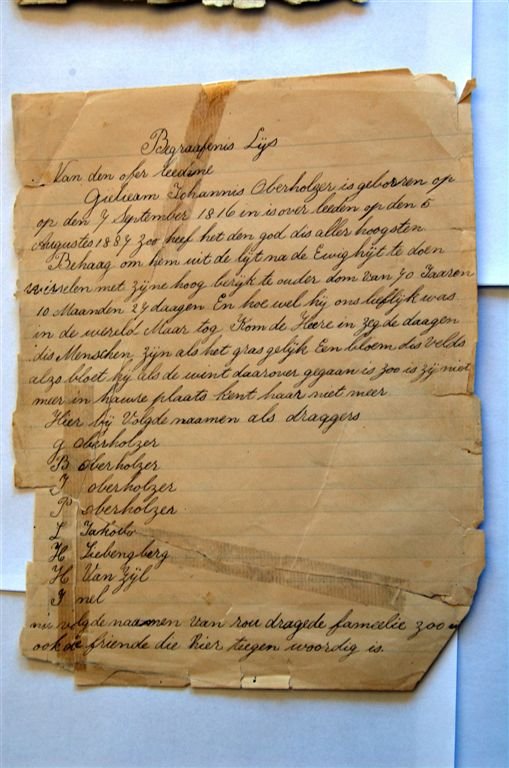 Begraafenis Lijs
Van den ofer leedine
Gulieam Johannis Oberholzer is gebooren op
op den 7 September 1816 in is over leeden op den 5
Augustes 1887 zoo heef het den god dis aller hoogsten
Behaag om hem uit de tijt na de Ewig hijt te doen
wisselen met zijne hoog berijk te ouder dom van 70 Jaaren
10 Maanden 27 daagen En hoe wel hij ons lieflijk was
in de wereld Maar tog Kom de Heere in zeg de daagen
dis Menschen zijn als het gras gelijk Een bloem dis velds
alzo bloet hij als de wint daarover gegaan is zoo is zij niet
meer in haure plaats kent haar niet meer
Hier bij Volgde naamen als draggers
G oberholzer
B oberholzer
J oberholzer
P oberholzer
L Jakobs
H Liebengberg
H Van Zÿl
J nel
nu volgde naamen van rou dragede fameelie zoo
ook de friende die hier teegen woordig is.